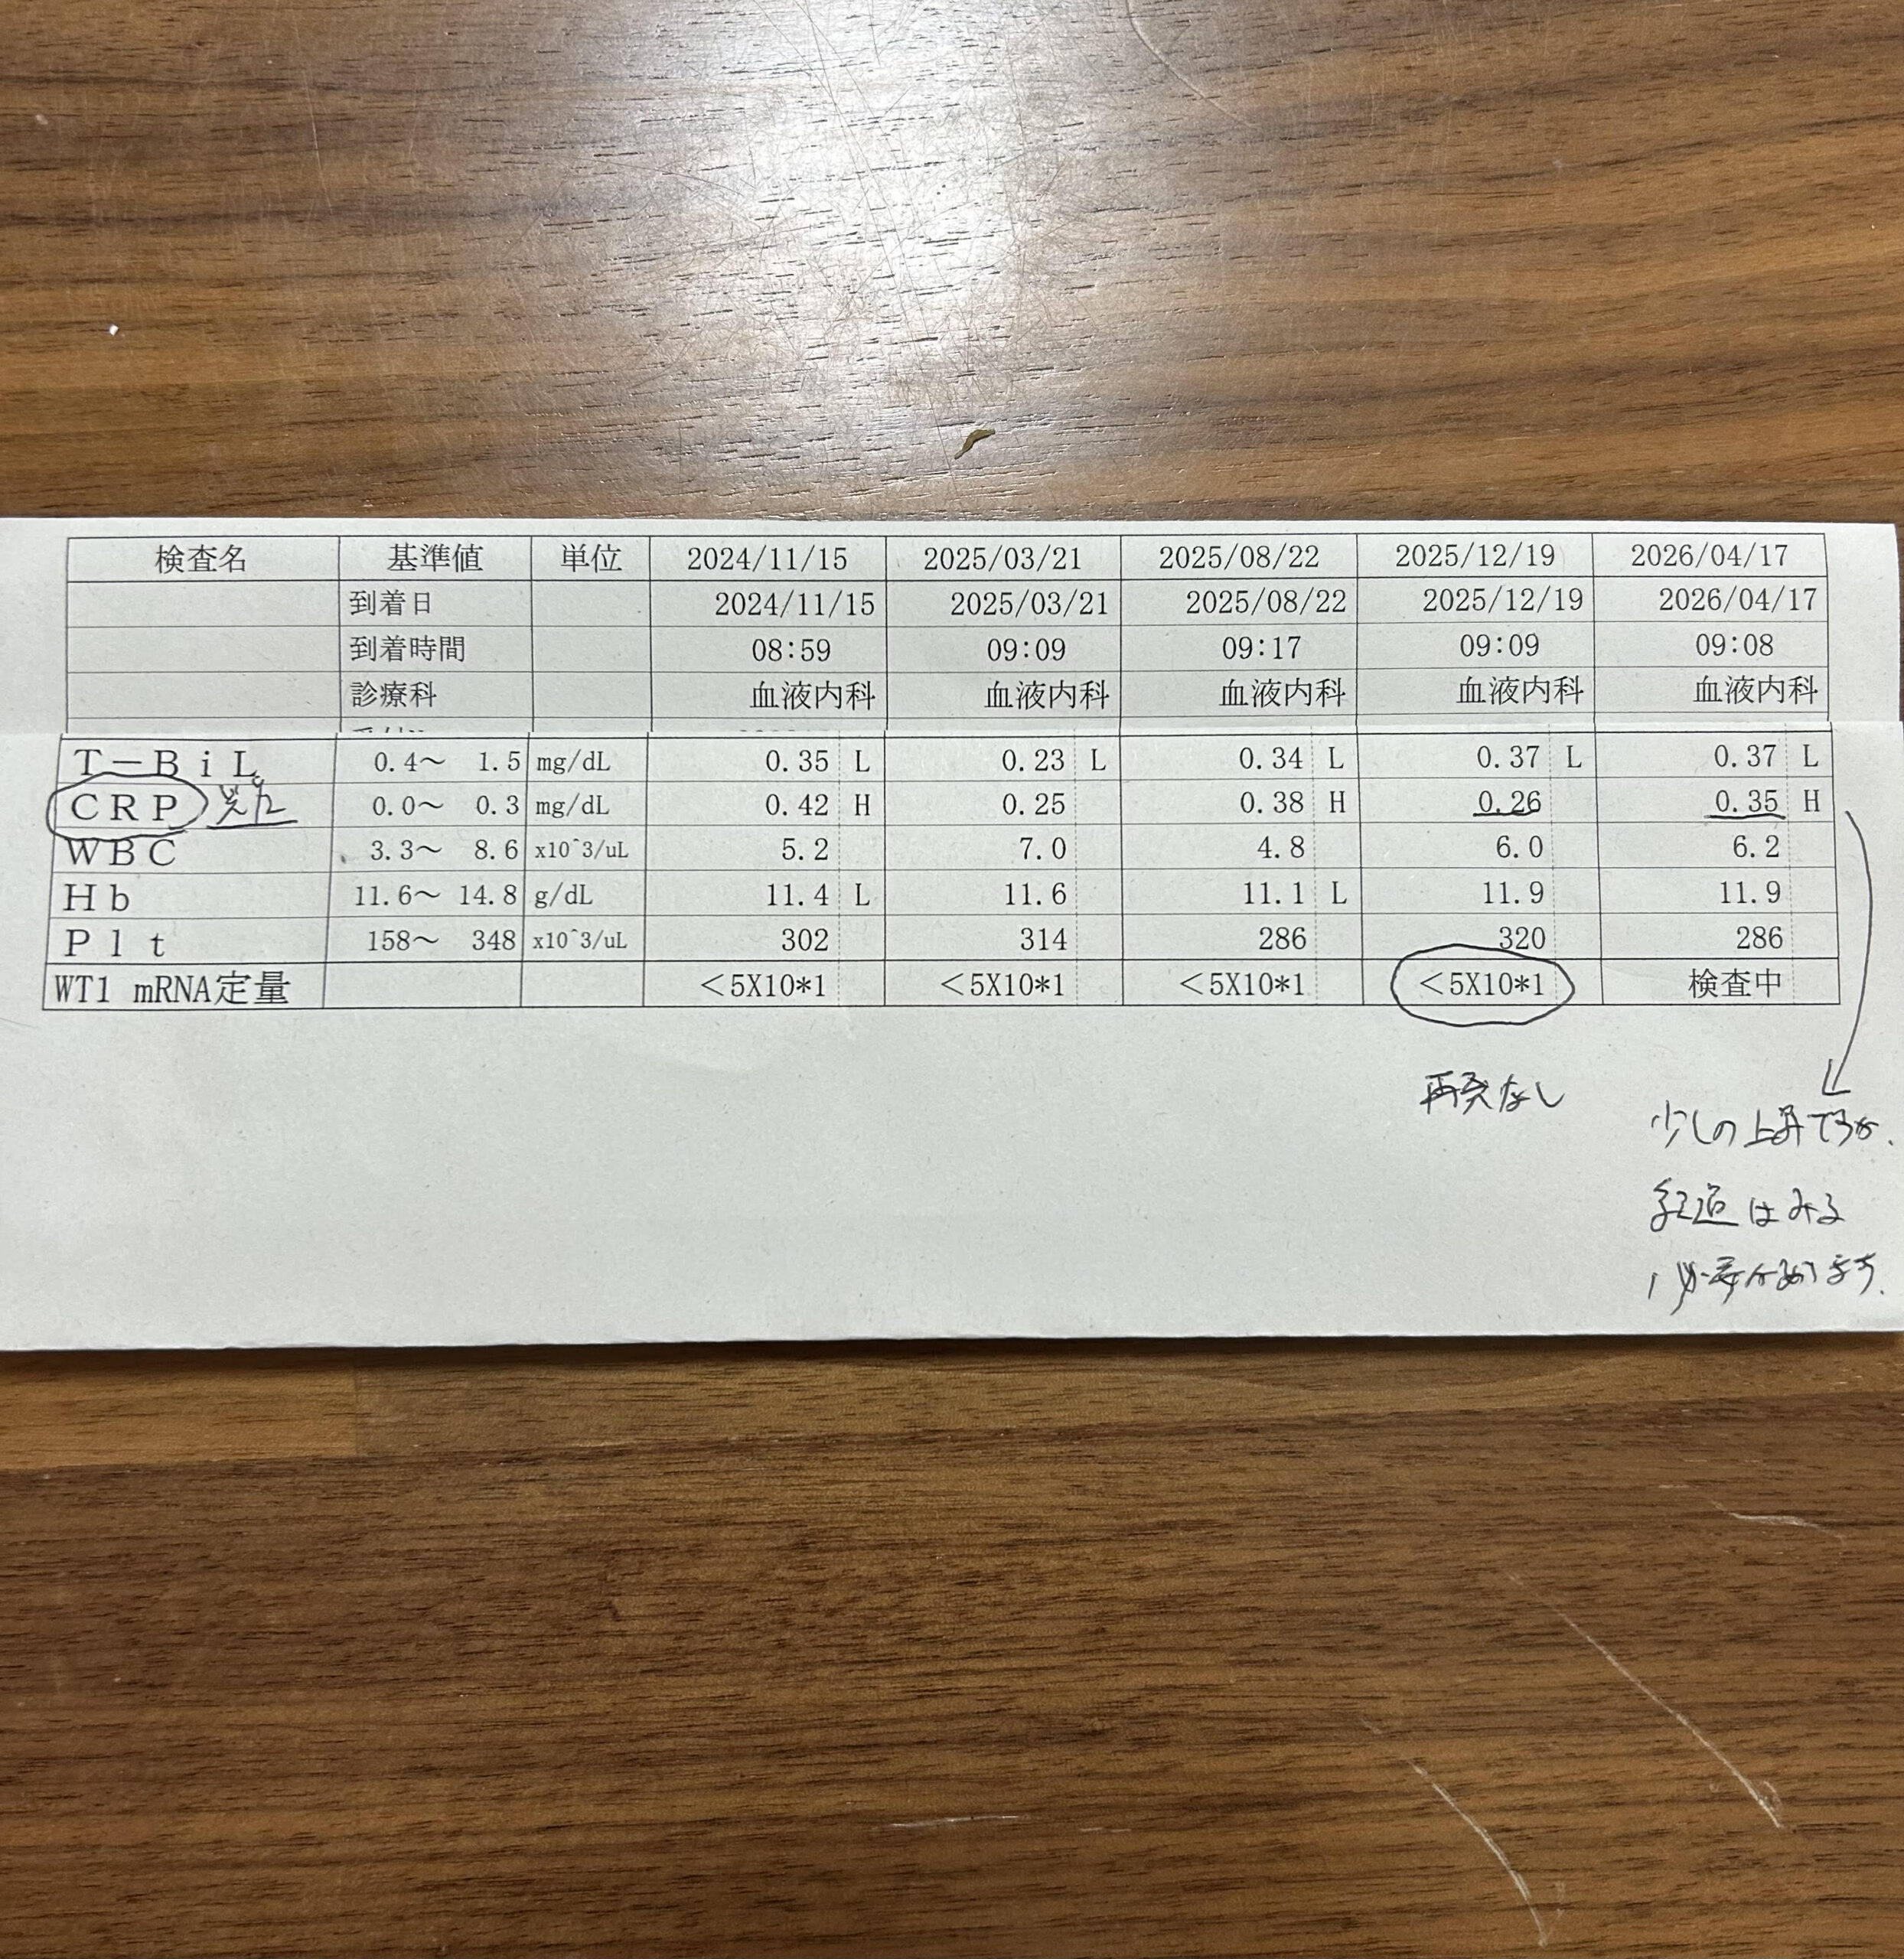 検査名 基準値 単位 2024/11/15 2025/03/21 2025/08/22 2025/12/19 2026/04/17
到着日 2024/11/15 2025/03/21 2025/08/22 2025/12/19 2026/04/17
到着時間 08:59 09:09 09:17 09:09 09:08
診療科 血液内科 血液内科 血液内科 血液内科 血液内科
T-BiL 0.4~ 1.5 mg/dL 0.35 L 0.23 L 0.34 L 0.37 L 0.37 L
CRP 炎症 0.0~ 0.3 mg/dL 0.42 H 0.25 0.38 H 0.26 0.35 H
WBC 3.3~ 8.6 x10^3/uL 5.2 7.0 4.8 6.0 6.2
Hb 11.6~ 14.8 g/dL 11.4 L 11.6 11.1 L 11.9 11.9
Plt 158~ 348 x10^3/uL 302 314 286 320 286
WT1 mRNA定量 <5X10*1 <5X10*1 <5X10*1 <5X10*1 検査中
再発なし
少しの上昇ですが、
経過はみる
必要があります.